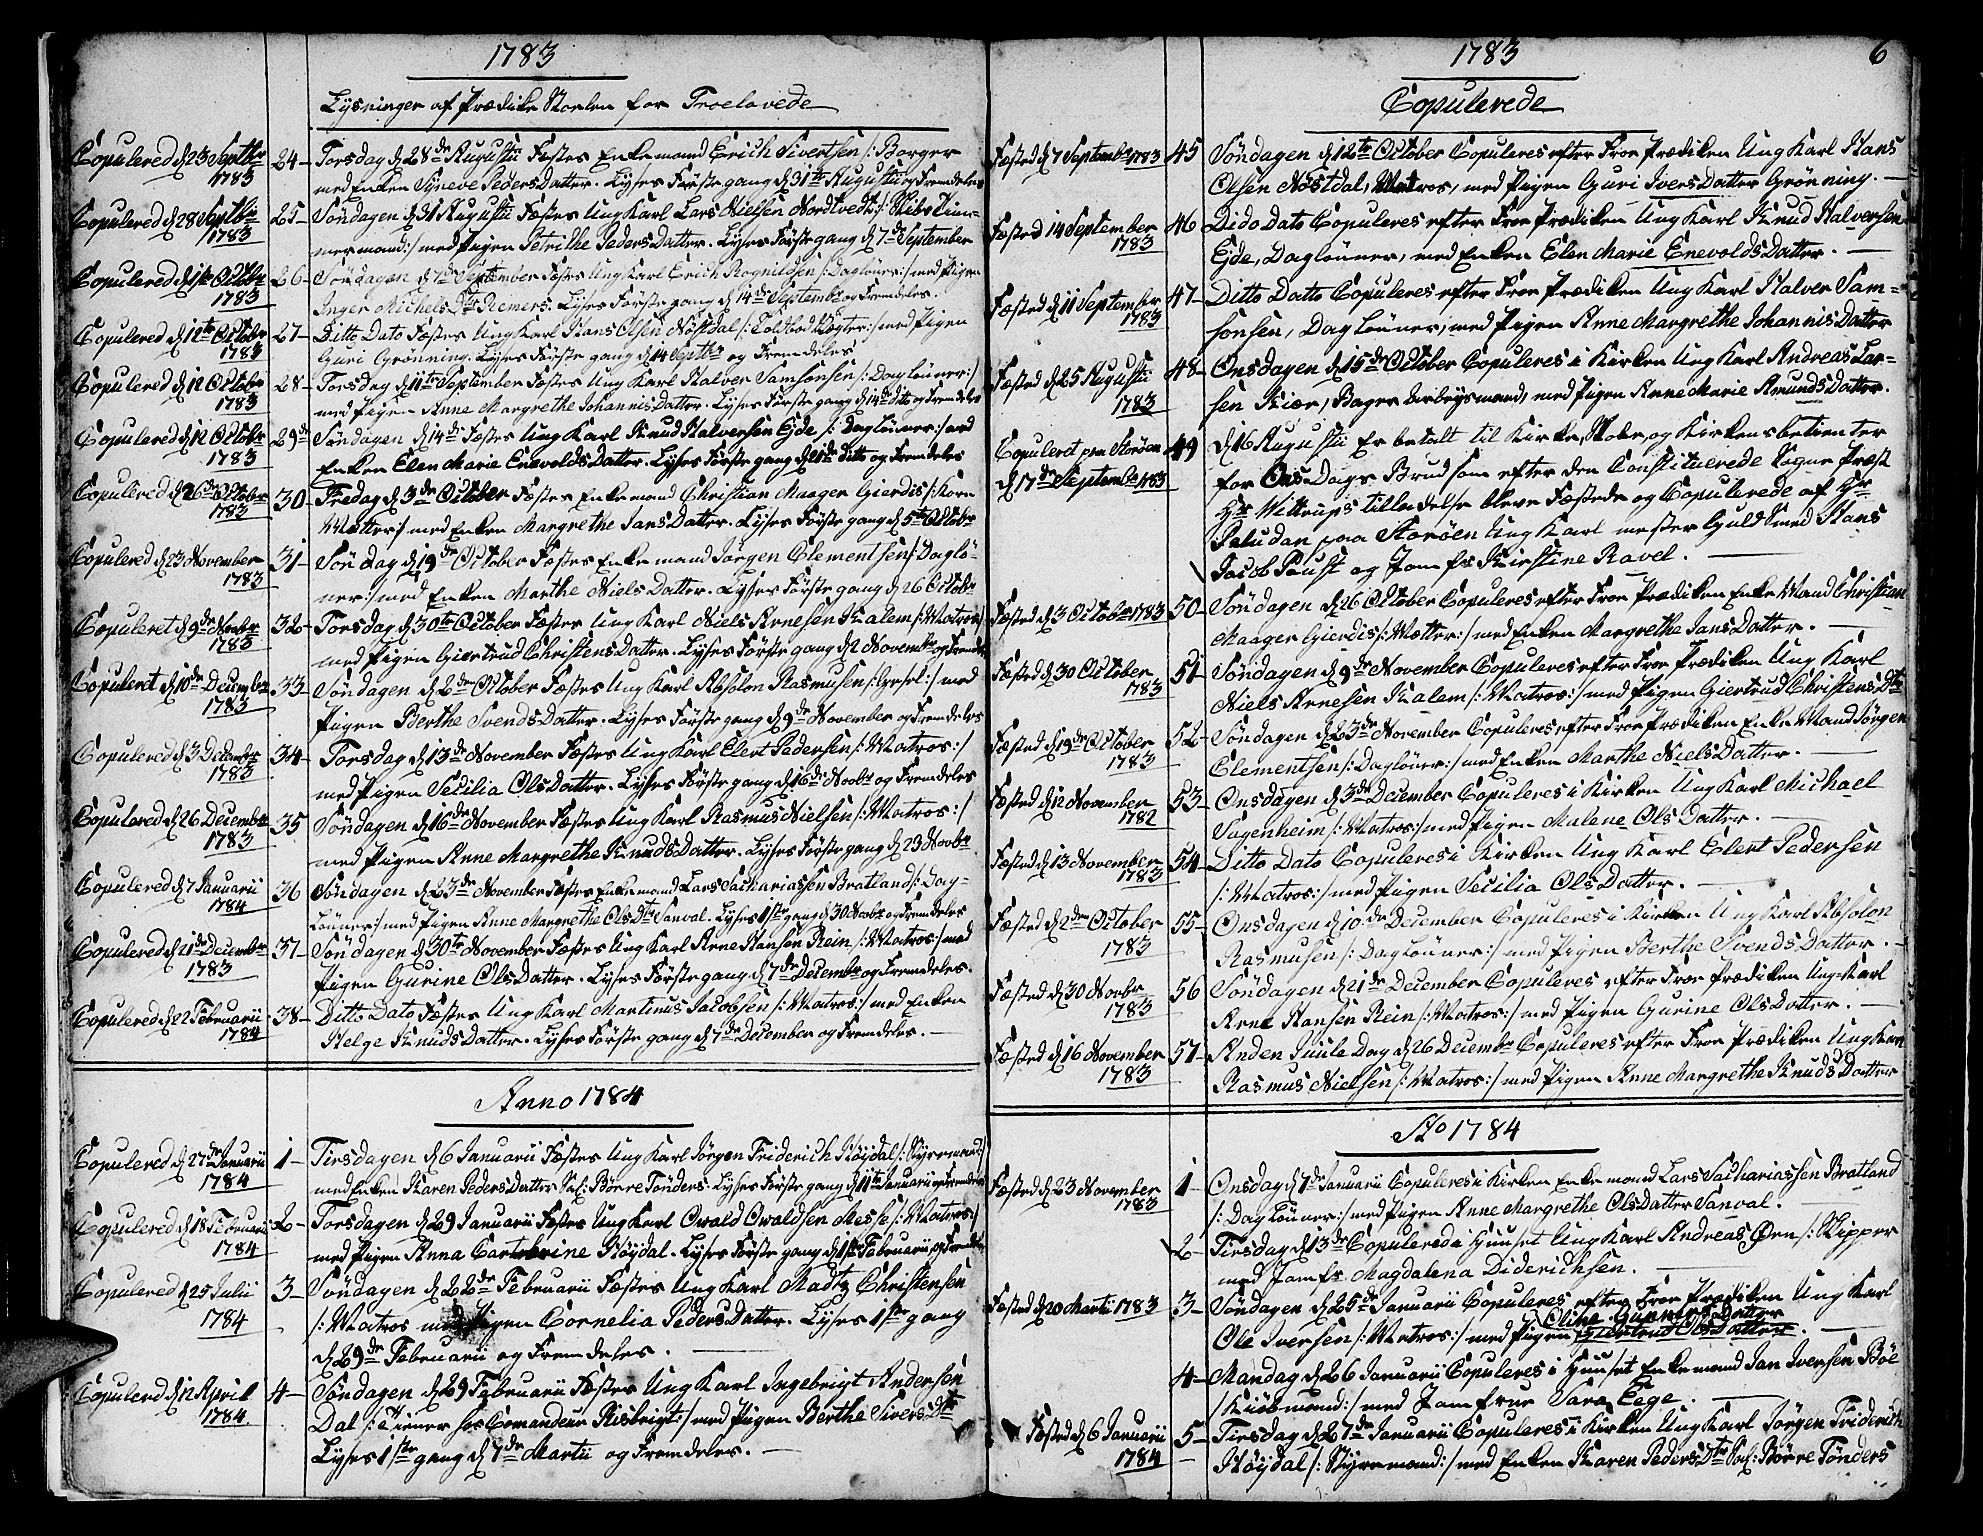 1783
Lysninger af Prædike Stoelen for Troelovede
Copulered d 23 Septbr 1783
24- Torsdag d 28de Augustii Fæstes Enkemand Erich Sivertsen /: Borger
med Enken Syneve Peders Datter. Lyses Förste gang d 31te Augustii og Fremdeles
Copulered d 28 Septbr 1783
25- Söndagen d 31 Augustii Fæstes Ung Karl Lars Nielsen Nordtvedt /: Skibs Tim-
mermand :/ med Pigen Petrilke Peders Datter. Lyses Förste gang d 7de September
Copulered d 1ste Octbr 1783
26- Söndagen d 7de September Fæstes Ung Karl Erich Rognildsen /: Daglöner :/ med Pigen
Inger Michels Dtr Remers. Lyses Förste gang d 14de Septembr og Fremdeles.
Copulered d 12te Octobr 1783
27- Ditto Dato Fæstes Ung Karl Hans Olsen Nöstdal /: Toldbod Rögter :/ med Pigen
Guri Grönning. Lyses Förste gang d 14 Septbr og Fremdeles
Copulered d 12 Octobr 1783
28- Torsdag d 11te September Fæstes Ung Karl Halver Samsonsen /: Daglönner :/
med Pigen Anne Margrethe Johannis Datter. Lyses Förste gang d 14de dito og Fremdeles
Copulered d 12 Octobr 1783
29de Söndagen d 14de Fæstes Ung Karl Knud Halversen Ejde /: Daglönner :/ med
Enken Elen Marie Enevolds Datter. Lyses Förste gang d 21de Ditto og Fremdeles
Copulered d 26de Octobr 1783
30- Fredag d 3de October Fæstes Enkemand Christian Maager Gierdis /: Korn
Mætter :/ med Enken Margrethe Jans Datter. Lyses Förste gang d 5te Octobr
Copulered d 23 November 1783
31- Söndag d 19de October Fæstes Enkemand Jörgen Clementsen /: Daglö-
ner :/ med Enken Marthe Niels Datter. Lyses Förste gang d 26 Octobr
Copuleret d 9de Novbr 1783
32- Torsdag d 30te October Fæstes Ung Karl Niels Arnesen Kalem /: Matros :/
med Pigen Giertrud Christens Datter. Lyses Förste gang d 2 Novembr og Fremdeles
Copuleret d 10de Decembr 1783
33- Söndagen d 2den October Fæstes Ung Karl Absolon Rasmusen /: Gesel :/ med
Pigen Berthe Svends Datter. Lyses Förste gang d 9de November og Fremdeles
Copulered d 3 Decembr 1783
34- Torsdag d 13de November Fæstes Ung Karl Elert Pedersen /: Matros :/
med Pigen Secilia Ols Datter. Lyses Förste gang d 16de Novbr og Fremdeles
Copulered d 26 Decembr 1783
35 Söndagen d 16de November Fæstes Ung Karl Rasmus Nielsen /: Matros :/
med Pigen Anne Margrethe Knuds Datter. Lyses Förste gang d 23 Novbr
Copulered d 7 Januarii 1784
36 Söndagen d 23de November Fæstes Enkemand Lars Sachariassen Bratland /: Dag-
lönner :/ med Pigen Anne Margrethe Ols Dtr Sanval. Lyses 1ste gang d 30 Novbr og Fremdeles
Copulered d 21de Decembr 1783
37- Söndagen d 30te November Fæstes Ung Karl Arne Hansen Rein /: Matros :/ med
Pigen Gurine Ols Datter. Lyses Förste gang d 7de Decembr og Fremdeles.
Copulered d 22 Februarii 1784
38- Ditto Dato Fæstes Ung Karl Martinus Jacobsen /: Matros :/ med Enken
Helge Knuds Datter. Lyses Förste gang d 7de December og Fremdeles.
Anno 1784
Copulered d 27de Januarii 1784
1- Tirsdagen d 6 Januarii Fæstes Ung Karl Jörgen Friderich Höydal /: Styrmand :/
med Enken Karen Peders Datter Sal: Börre Tönders. Lyses Förste gang d 11te Januarii og Fremdeles
Copulered d 18 Februarii 1784
2- Torsdagen d 29 Januarii Fæstes Ung Karl Owald Owaldsen Messe /: Matros :/
med Pigen Anna Cathrine Höydal. Lyses Förste gang d 1ste Februarii og Fremdeles
Copulered d 25 Julii 1784
3- Söndagen d 22de Februarii Fæstes Ung Karl Madtz Christensen
/: Matros med Pigen Cornelia Peders Datter. Lyses 1ste gang
d 29de Februarii og Fremdeles.
Copulered d 12 April 1784
4- Söndagen d 29 Februarii Fæstes Ung Karl Ingebrigt Andersen
Dal /: Tiener hos Comandeur Risbrigt :/ med Pigen Berthe Sivers Dtr
Lyses 1ste gang d 7de Martii og Fremdeles.
1783
6
Copulerede
Fæsted d 7 Septembr 1783
45 Söndagen d 12te October Copuleres efter Froe Prædiken Ung Karl Hans
Olsen Nöstdal, Matros, med Pigen Guri Ivers Datter Grönning.
Fæsted 14 September 1783
46 Dido Dato Copuleres efter Froe Prædiken Ung Karl Knud Halversen
Ejde, Daglönner, med Enken Elen Marie Enevolds Datter.
Fæsted d 11 September 1783
47- Ditto Datto Copuleres efter Froe Prædiken Ung Karl Halver Sam-
sonsen, Daglönner, med Pigen Anne Margrethe Johannis Datter
Fæsted d 25 Augustii 1783
48- Onsdagen d 15de October Copuleres i Kirken Ung Karl Andreas Lar-
sen Kiær, Bager, med Pigen Anne Marie Amunds Datter.
Copuleret paa Storöen d 17de Septembr 1783
49 d 16 Augustii Er betalt til Kirke, Skole, og Kirkens betienter
for Ons Dags Brud som efter den Constituerede Sogne Præst
Hr Wittrups tilladelse bleve Fæstede og Copulerede af Hr
Paludan paa Storöen Ung Karl mester Guldsmed Hans
Jacob Paust og Jomfr Kirstine Ravel.
Fæsted d 3 Octobr 1783
50- Söndagen d 26 October Copuleres efter Froe Prædiken Enke Mand Christian
Maager Gierdis /: Mætter :/ med Enken Margrethe Jans Datter.
Fæsted d 30 October 1783
51 Söndagen d 9de November Copuleres efter Froe Prædiken Ung Karl
Niels Arnesen Kalem /: Matros :/ med Pigen Giertrud Christens Dtr
Fæsted d 19de October 1783
52- Söndagen d 23de November Copuleres efter Froe Prædiken Enke Mand Jörgen
Clementsen /: Daglöner :/ med Enken Marthe Niels Datter.
Fæsted d 12 November 1782
53- Onsdagen d 3de December Copuleres i Kirken Ung Karl Michael
Sagenheim /: Matros :/ med Pigen Malene Ols Datter.
Fæsted d 13 November 1783
54- Ditto Dato Copuleres i Kirken Ung Karl Elert Pedersen
/: Matros :/ med Pigen Secilia Ols Datter.
Fæsted d 2den October 1783
55- Onsdagen d 10de December Copuleres i Kirken Ung Karl Absolon
Rasmusen /: Daglönner :/ med Pigen Berthe Svends Datter.
Fæsted d 30 Novbr 1783
56 Söndagen d 21de December Copuleres efter Froe Prædiken Ung Karl
Arne Hansen Rein /: Matros :/ med Pigen Gurine Ols Datter.
Fæsted d 16 November 1783
57- Anden Juule Dag d 26 Decembr Copuleres efter Froe Prædiken Ung Karl
Rasmus Nielsen /: Matros :/ med Pigen Anne Margrethe Knuds Datter
Ao 1784
Fæsted d 23 November 1783
1- Onsdag d 7de Januarii Copuleres i Kirken Enkemand Lars Sachariassen Bratland
/: Daglönner :/ med Pigen Anne Margrethe Ols Datter Sanval.
2- Tirsdag d 13de Copulered i Huuset Ung Karl Andreas Örn /: Skipper
med Jomfr. Magdalena Diderichsen.
Fæsted d 20 Martii 1783
3- Söndagen d 25de Januarii Copuleres efter Froe Prædiken Ung Karl
Ole Iversen /: Matros :/ med Pigen Oline Gunners Datter Giertrud Ols Datter.
4- Mandag d 26 Januarii Copuleres i Huuset Enkemand Jan Iversen Böe
/: Kiöbmand :/ med Jomfrue Sara Ege.
Fæsted d 6 Januarii 1784
5- Tirsdag d 27de Januarii Copuleres i Kirken Ung Karl Jörgen Friderich
Höydal /: Styrmand :/ med Enken Karen Peders Dtr Sal: Börre Tönders